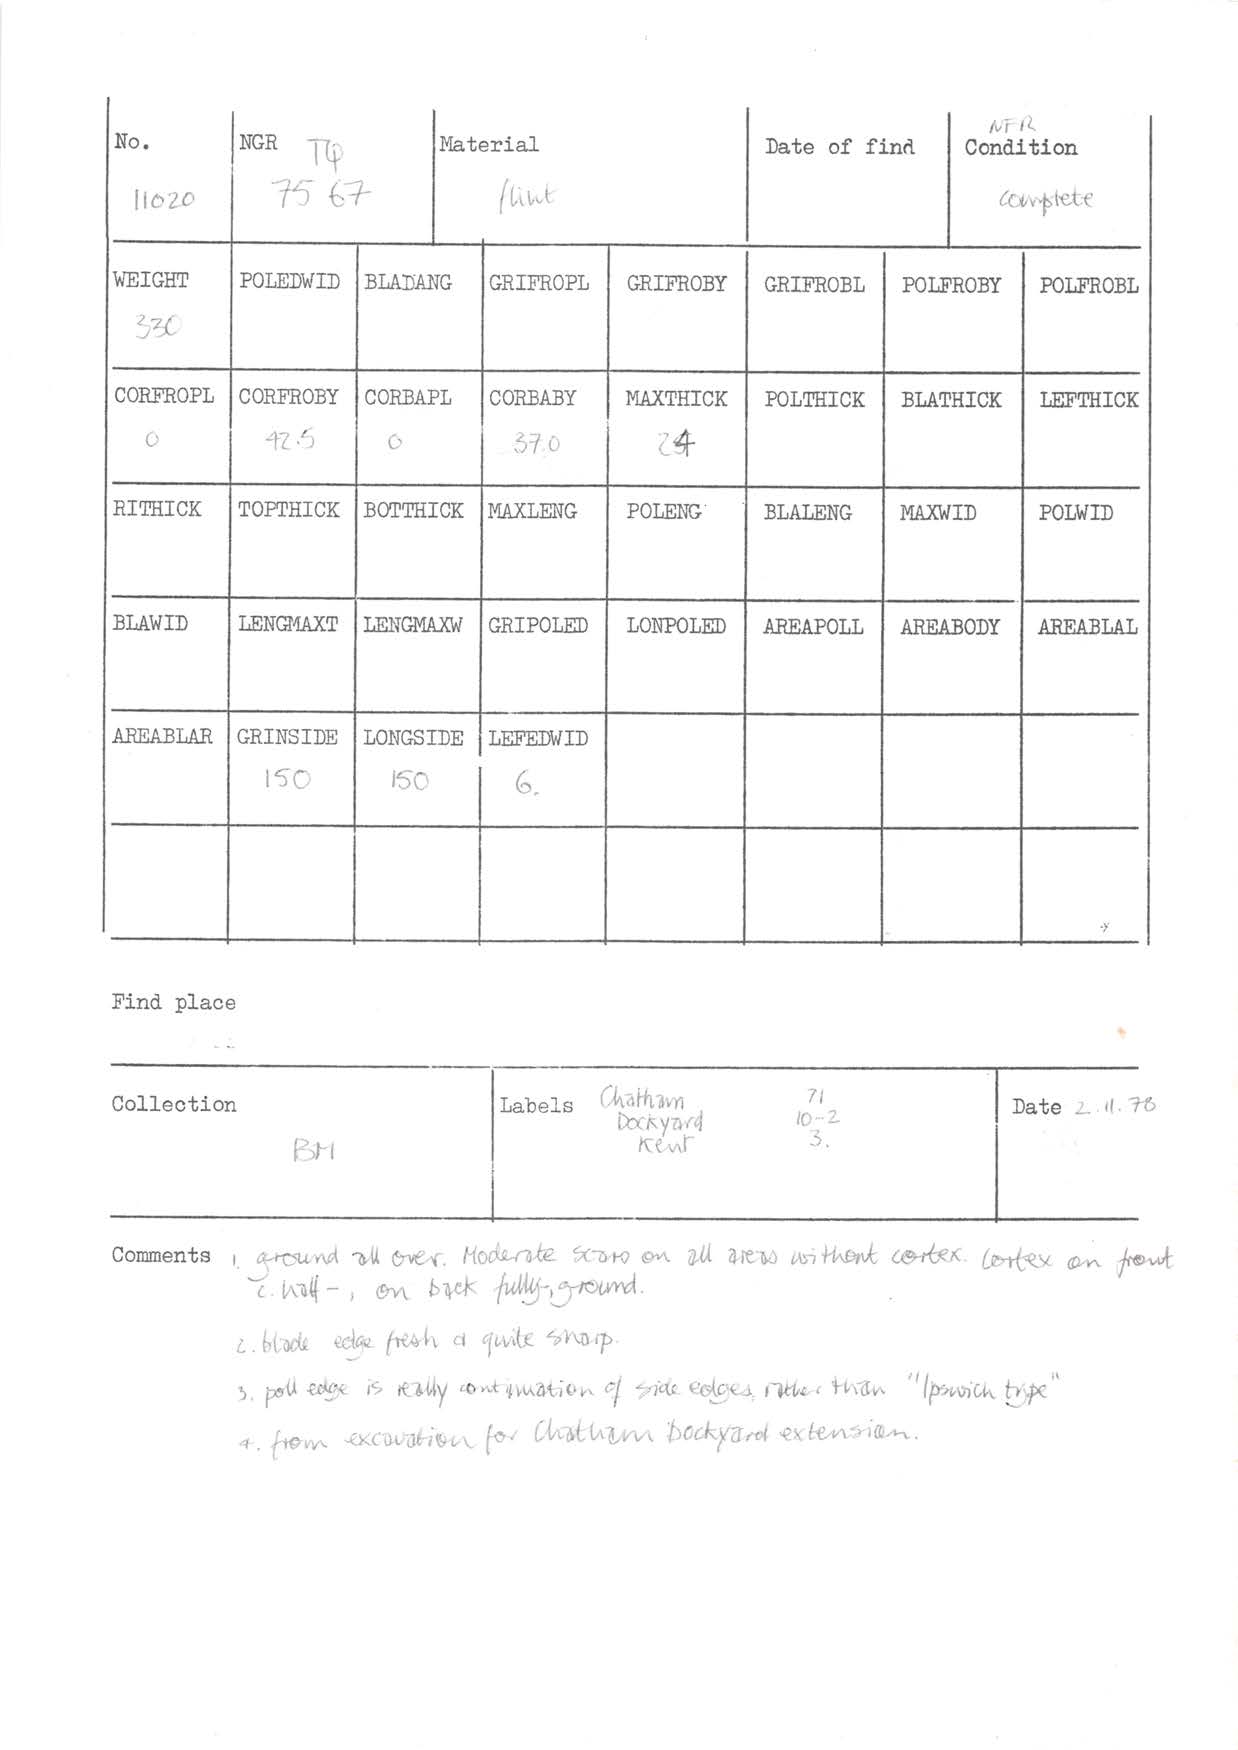 No. NGR TQ Material Date of find NFR Condition
11020 75 67 flint complete
WEIGHT POLEDWID BLADANG GRIFROPL GRIFROBY GRIFROBL POLFROBY POLFROBL
330
CORFROPL CORFROBY CORBAPL CORBABY MAXTHICK POLTHICK BLATHICK LEFTHICK
0 42.5 0 37.0 24
RITHICK TOPTHICK BOTTHICK MAXLENG POLENG BLALENG MAXWID POLWID
BLAWID LENGMAXT LENGMAXW GRIPOLED LONPOLED AREAPOLL AREABODY AREABLAL
AREABLAR GRINSIDE LONGSIDE LEFEDWID
150 150 6.
Find place
Collection BM
Labels Chatham 71
Dockyard 10-2
Kent 3.
Date 2.11.78
Comments 1. ground all over. Moderate scars on all areas without cortex. Cortex on front
c. half-, on back fully-, ground.
2. blade edge fresh & quite sharp.
3. poll edge is really continuation of side edges, rather than "Ipswich type"
4. from excavation for Chatham Dockyard extension.